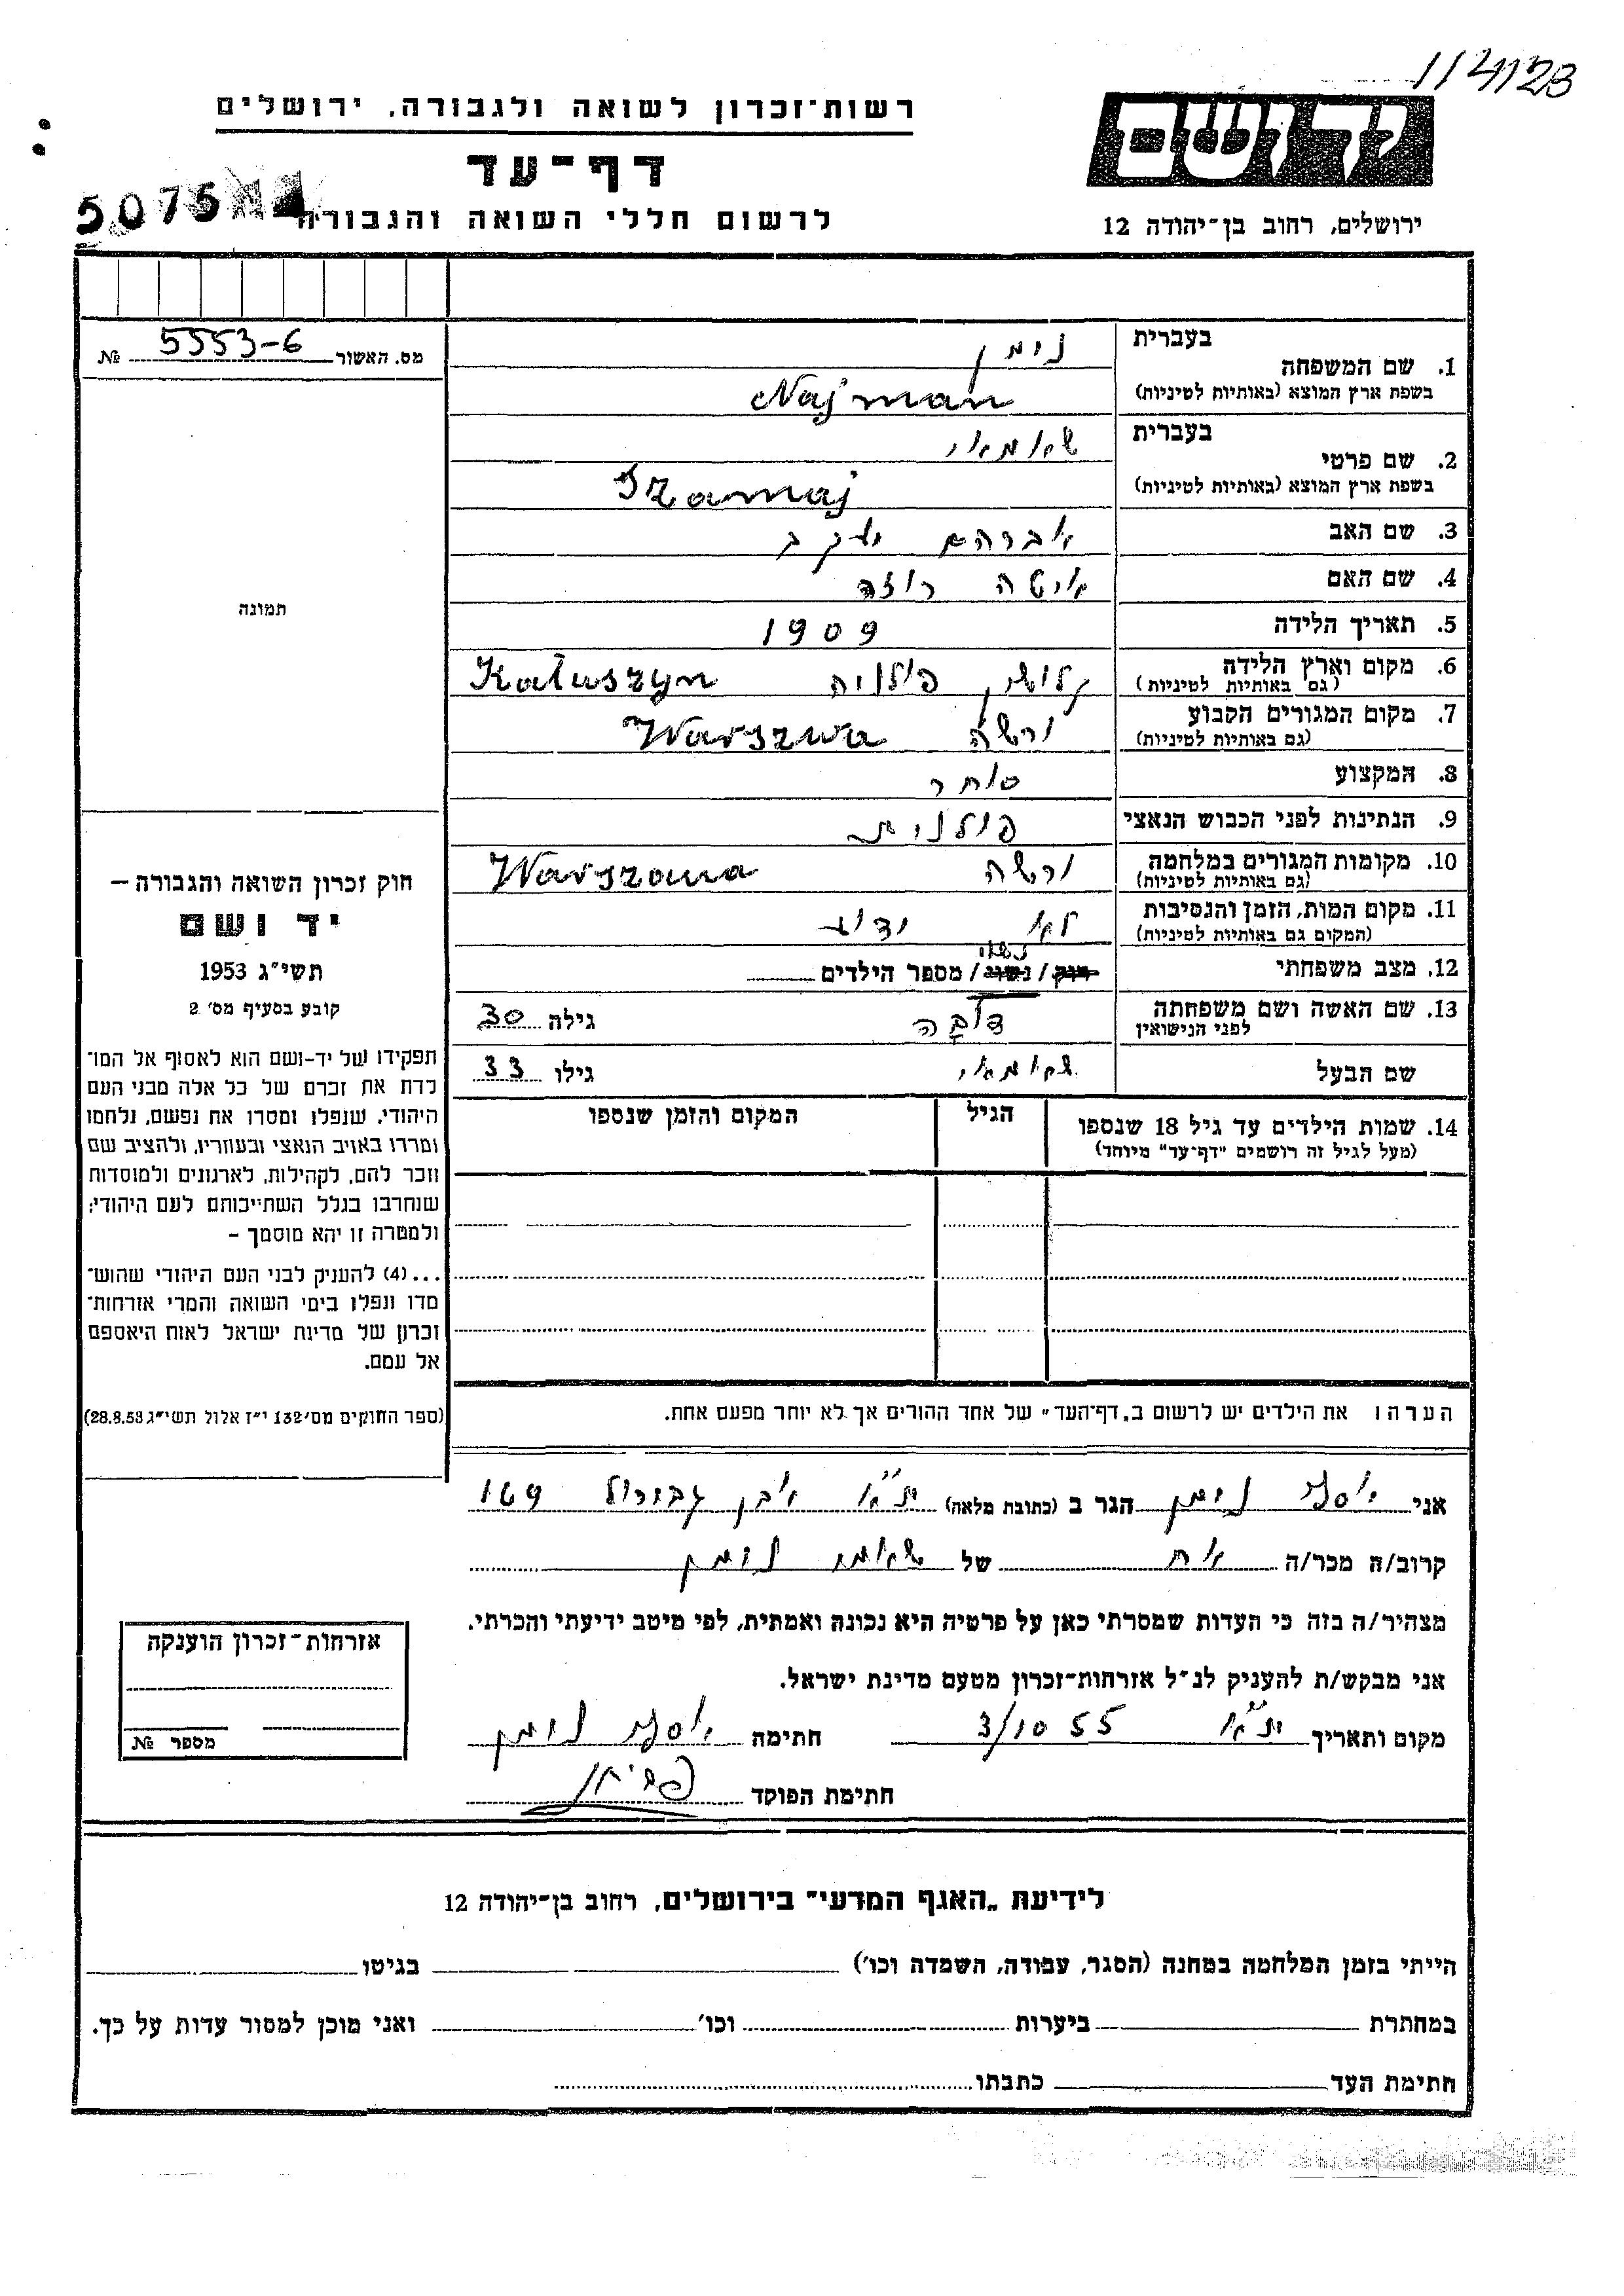 114123
רשות־זכרון לשואה ולגבורה, ירושלים
יד ושם
דף־עד
5075
לרשום חללי השואה והגבורה
ירושלים, רחוב בן־יהודה 12
מס. האשור 5553-6 №
בעברית
1. שם המשפחה נימן
בשפת ארץ המוצא (באותיות לטיניות) Najman
בעברית
2. שם פרטי שאמאי
בשפת ארץ המוצא (באותיות לטיניות) Szamaj
3. שם האב אברהם יעקב
4. שם האם איטה רוזה
תמונה
5. תאריך הלידה 1909
6. מקום וארץ הלידה קלושין פולניה Kałuszyn
(גם באותיות לטיניות)
7. מקום המגורים הקבוע ורשה Warszwa
(גם באותיות לטיניות)
8. המקצוע סוחר
9. הנתינות לפני הכבוש הנאצי פולנית
10. מקומות המגורים במלחמה ורשה Warszawa
(גם באותיות לטיניות)
11. מקום המות, הזמן והנסיבות לא ידוע
(המקום גם באותיות לטיניות)
נשוי
12. מצב משפחתי רווק / נשוי / מספר הילדים
13. שם האשה ושם משפחתה דובה גילה 30
לפני הנישואין
שם הבעל שאמאי גילו 33
14. שמות הילדים עד גיל 18 שנספו הגיל המקום והזמן שנספו
(מעל לגיל זה רושמים "דף־עד" מיוחד)
חוק זכרון השואה והגבורה –
יד ושם
תשי״ג 1953
קובע בסעיף מס׳ 2
תפקידו של יד-ושם הוא לאסוף אל המו־
לדת את זכרם של כל אלה מבני העם
היהודי, שנפלו ומסרו את נפשם, נלחמו
ומרדו באויב הנאצי ובעוזריו, ולהציב שם
וזכר להם, לקהילות, לארגונים ולמוסדות
שנחרבו בגלל השתייכותם לעם היהודי;
ולמטרה זו יהא מוסמך –
...(4) להעניק לבני העם היהודי שהוש־
מדו ונפלו בימי השואה והמרי אזרחות־
זכרון של מדינת ישראל לאות היאספם
אל עמם.
(ספר החוקים מס׳ 132 י״ז אלול תשי״ג 28.8.53)
הערה: את הילדים יש לרשום ב„דף־העד״ של אחד ההורים אך לא יותר מפעם אחת.
אני יוסף נוימן הגר ב (כתובת מלאה) ת״א אבן גבירול 169
קרוב/ה מכר/ה אח של שאמי נוימן
מצהיר/ה בזה כי העדות שמסרתי כאן על פרטיה היא נכונה ואמתית, לפי מיטב ידיעתי והכרתי.
אני מבקש/ת להעניק לנ״ל אזרחות־זכרון מטעם מדינת ישראל.
מקום ותאריך ת״א 3/10 55 חתימה יוסף נוימן
חתימת הפוקד
אזרחות־זכרון הוענקה
מספר №
לידיעת „האגף המדעי״ בירושלים, רחוב בן־יהודה 12
הייתי בזמן המלחמה במחנה (הסגר, עבודה, השמדה וכו׳) בגיטו
במחתרת ביערות וכו׳ ואני מוכן למסור עדות על כך.
חתימת העד כתבתו